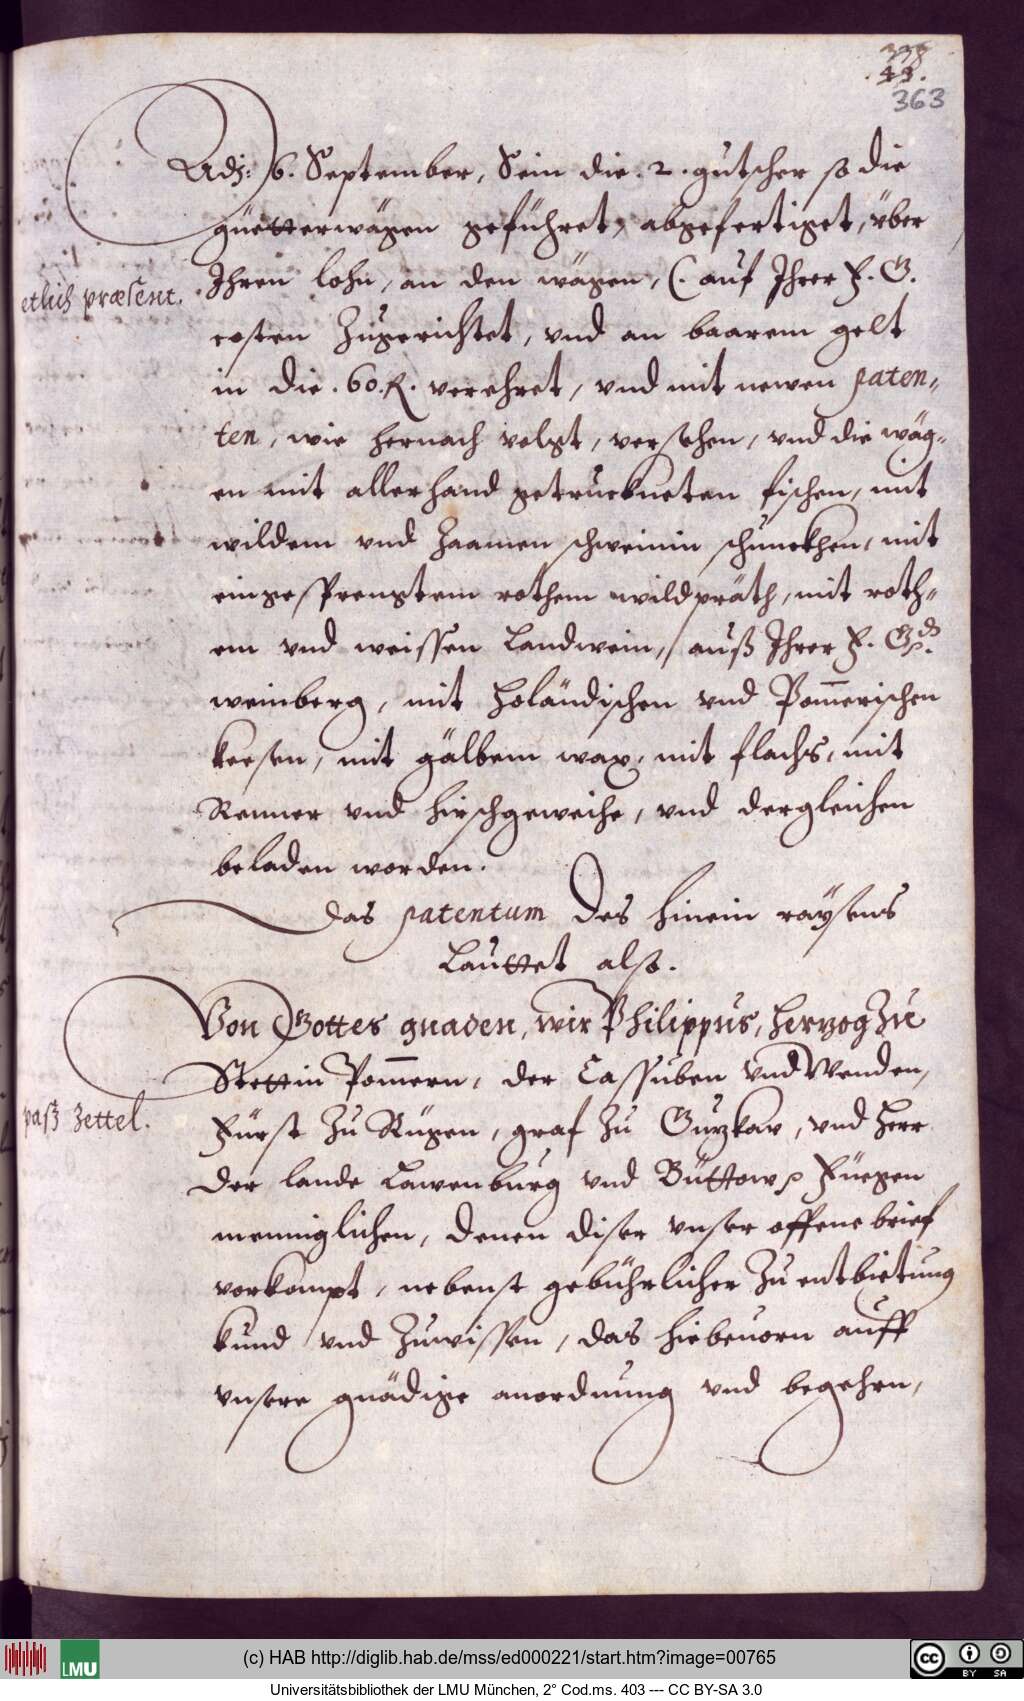 338
43.
363
Adj: 6. September, Sein die .2. gutscher so die
güetterwägen geführet, abgefertiget, über
Ihren lohn, an den wägen, (. auf Ihrer F. G.
etlich præsent.
costen Zugerichtet, vnd an baarem gelt
in die .60. R. verehret, vnd mit newen paten-
ten, wie hernach volgt, versehen, vnd die wäg-
en mit allerhand getruckneten fischen, mit
wildem vnd Zaamen schweinin schunckhen, mit
eingesprengtem rothem wildpräth, mit roth-
em vnd weissen Landwein, auß Ihrer F. Gd.
weinberg, mit holändischen vnd Pom̄erischen
keesen, mit gälbem wax, mit flachs, mit
Renner vnd hirschgeweihe, vnd dergleichen
beladen worden.
das patentum des hinein raÿsens
Lauttet also.
Von Gottes gnaden, wir Philippus, Hertzog Zue
Stettin Pom̄ern, der Cassuben vnd Wenden,
paß Zettel.
Fürst Zu Rügen, graf Zu Gutzkaw, vnd Herr
der lande Lawenburg vnd Büttow, Füegen
menniglichen, denen diser vnser offene brief
vorkompt, nebenst gebührlicher Zu entbietung
kund vnd Zuwissen, das hiebeuorn auff
vnsere gnädige anordnung vnd begehrn,
(c) HAB http://diglib.hab.de/mss/ed000221/start.htm?image=00765
LMU
cc BY SA
Universitätsbibliothek der LMU München, 2° Cod.ms. 403 --- CC BY-SA 3.0